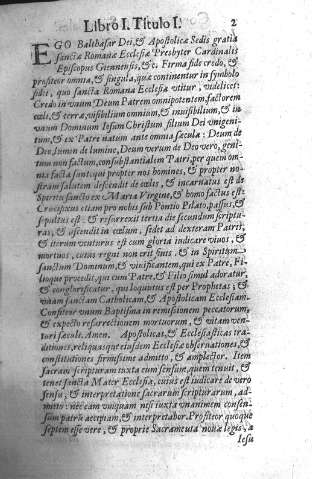 Libro I. Titulo I. 2
EGO Baltbasar Dei, & Apostolicæ Sedis gratia
sanctæ Romanæ Ecclesiæ Presbyter Cardinalis
Episcopus Giennensis, &c. Firma fide credo, &
profiteor omnia, & singula, quæ continentur in symbolo
fidei, quo sancta Romana Ecclesia vtitur, videlicet:
Credo in vnum Deum Patrem omnipotentem, factorem
cœli, & terræ, visibilium omnium, & inuisibilium, & in
vnum Dominum Iesum Christum filium Dei vnigeni-
tum, & ex Patre natum ante omnia sæcula: Deum de
Deo, lumen de lumine, Deum verum de Deo vero, geni-
tum non factum, consubstantialem Patri, per quem om-
nia facta sunt: qui propter nos homines, & propter no-
stram salutem descendit de cœlis, & incarnatus est de
Spiritu sancto ex Maria Virgine, & homo factus est:
Crucifixus etiam pro nobis sub Pontio Pilato, passus, &
sepultus est: & resurrexit tertia die secundum scriptu-
ras, & ascendit in cœlum, sedet ad dexteram Patris,
& iterum venturus est cum gloria iudicare viuos, &
mortuos, cuius regni non erit finis, & in Spiritum
sanctum Dominum, & viuificantem, qui ex Patre, Fi-
lioque procedit, qui cum Patre, & Filio simul adoratur,
& conglorificatur, qui loquutus est per Prophetas; &
vnam sanctam Catholicam, & Apostolicam Ecclesiam.
Confiteor vnum Baptisma in remissionem peccatorum,
& expecto resurrectionem mortuorum, & vitam ven-
turi sæculi. Amen. Apostolicas, & Ecclesiasticas tra-
ditiones, reliquasque eiusdem Ecclesiæ obseruationes, &
constitutiones firmissime admitto, & amplector. Item
sacram scripturam iuxta eum sensum, quem tenuit, &
tenet sancta Mater Ecclesia, cuius est iudicare de vero
sensu, & interpretatione sacrarum scripturarum, ad-
mitto: nec eam vnquam nisi iuxta vnanimem consen-
sum patrũ accipiam, & interpretabor. Profiteor quoque
septem esse vere, & proprie Sacramenta nouæ legis, a
Iesu